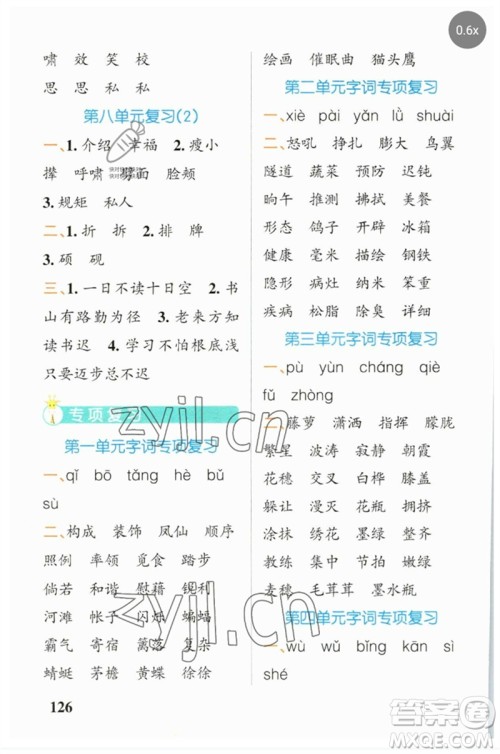 0.6x
啸 效 笑 校
思 思 私 私
第八单元复习(2)
一、1. 介绍 幸福 2. 瘦小
撵 呼啸 劈面 脸颊
3. 规矩 私人
二、1. 折 拆 2. 排 牌
3. 硕 砚
三、1. 一日不读十日空 2. 书
山有路勤为径 3. 老来方知
读书迟 4. 学习不怕根底浅
只要迈步总不迟
专项复习
第一单元字词专项复习
一、qǐ bō tǎng hè bǔ
sù
二、构成 装饰 凤仙 顺序
照例 率领 觅食 踏步
倘若 和谐 慰藉 瞬间
河滩 帐子 闪烁 蝙蝠
霸气 寄宿 蔼蔼 率领
蜻蜓 茅檐 黄蝶 徐徐
126
绘画 催眠曲 猫头鹰
第二单元字词专项复习
一、xiè pài yǎn lǜ shuài
二、怒吼 挣扎 膨大 鸟翼
隧道 蔬菜 预防 迟钝
晌午 推测 拂拭 美餐
形态 鸽子 开辟 冰箱
健康 毫米 描绘 钢铁
隐形 病灶 纳米 笨重
疾病 松脂 除臭 详细
第三单元字词专项复习
一、pù yùn cháng qiè
fú zhòng
二、藤萝 潇洒 指挥 朦胧
繁星 菱形 寂寞 苍茫
花穗 浸染 白桦 膝盖
躲让 漫灭 花瓶 模糊
涂抹 绣花 墨绿 墨绿
教练 集中 节拍 叠在
麦穗 毛茸茸 墨水瓶
第四单元字词专项复习
一、wù wǔ bǐng kān sì
shé
zyjl.cn
zyjl.cn
答案圈
MXQE.COM